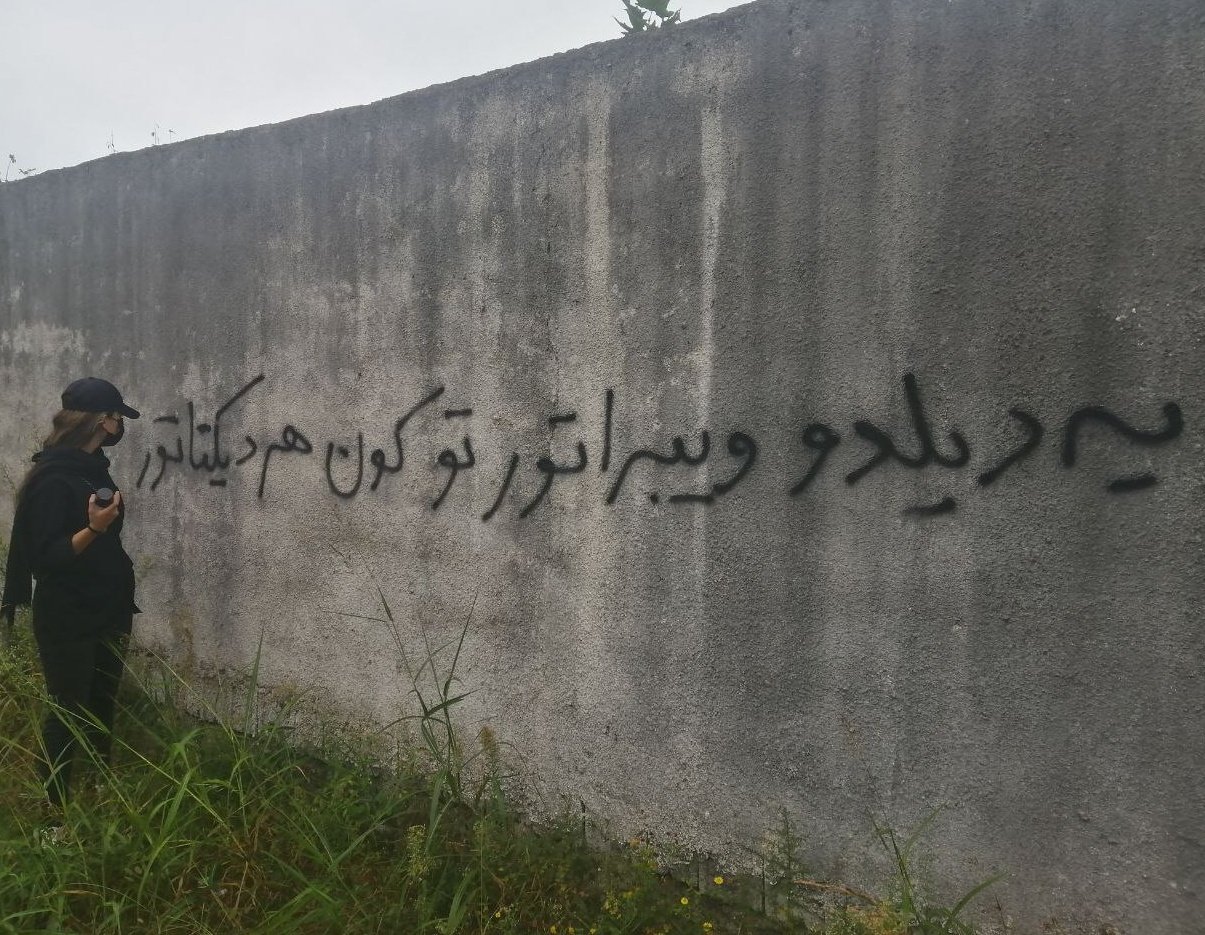 یه دیلدو و ویبراتور تو کون هر دیکتاتور